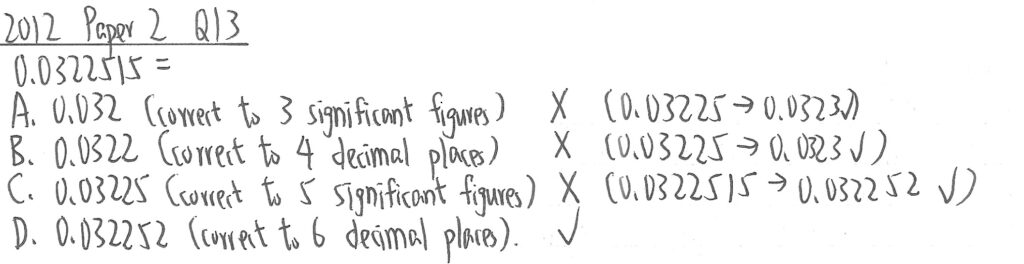 2012 Paper 2 Q13
0.0322515 =
A. 0.032 (correct to 3 significant figures) X (0.03225 → 0.0323√)
B. 0.0322 (correct to 4 decimal places) X (0.03225 → 0.0323 √)
C. 0.03225 (correct to 5 significant figures) X (0.0322515 → 0.032252 √)
D. 0.032252 (correct to 6 decimal places). √